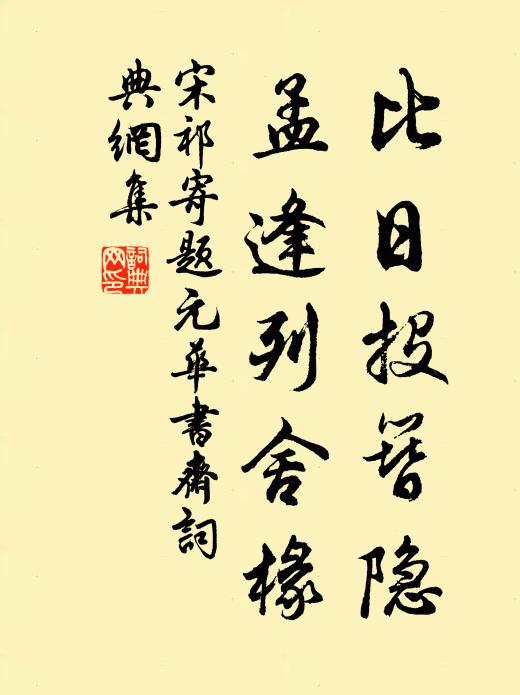 比日投簪隐
孟逢列舍椽
宋祁寄题元华书斋词
典網集
詞典
网印